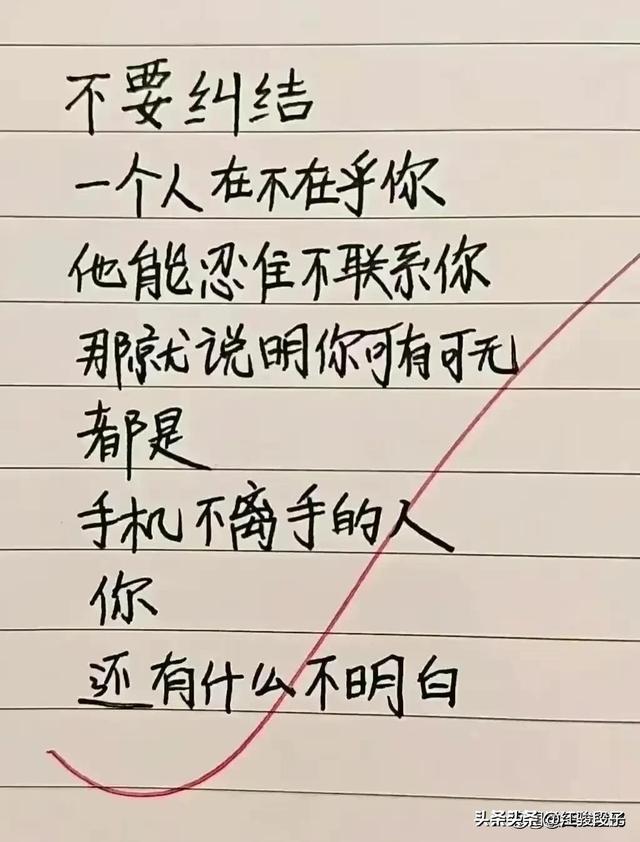 不要纠结
一个人在不在乎你
他能忍住不联系你
那就说明你可有可无
都是
手机不离手的人
你
还有什么不明白
头条 @红骏段子